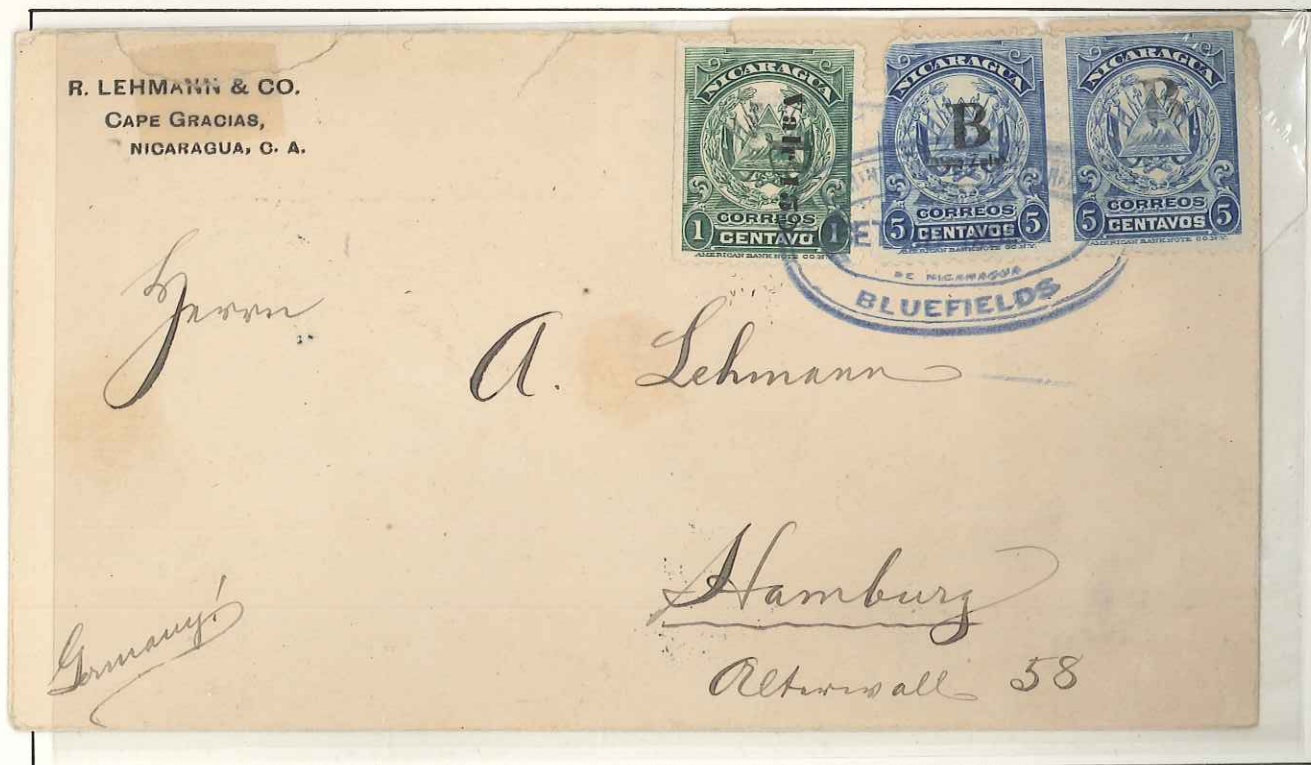 R. LEHMANN & CO.
CAPE GRACIAS,
NICARAGUA, C. A.
NICARAGUA
CORREOS
1 CENTAVO 1
AMERICAN BANK NOTE CO. N.Y.
NICARAGUA
B
CORREOS
5 CENTAVOS 5
AMERICAN BANK NOTE CO. N.Y.
NICARAGUA
CORREOS
5 CENTAVOS 5
AMERICAN BANK NOTE CO. N.Y.
DE NICARAGUA
BLUEFIELDS
Herrn
A. Lehmann
Hamburg
Alterwall 58
Germany!